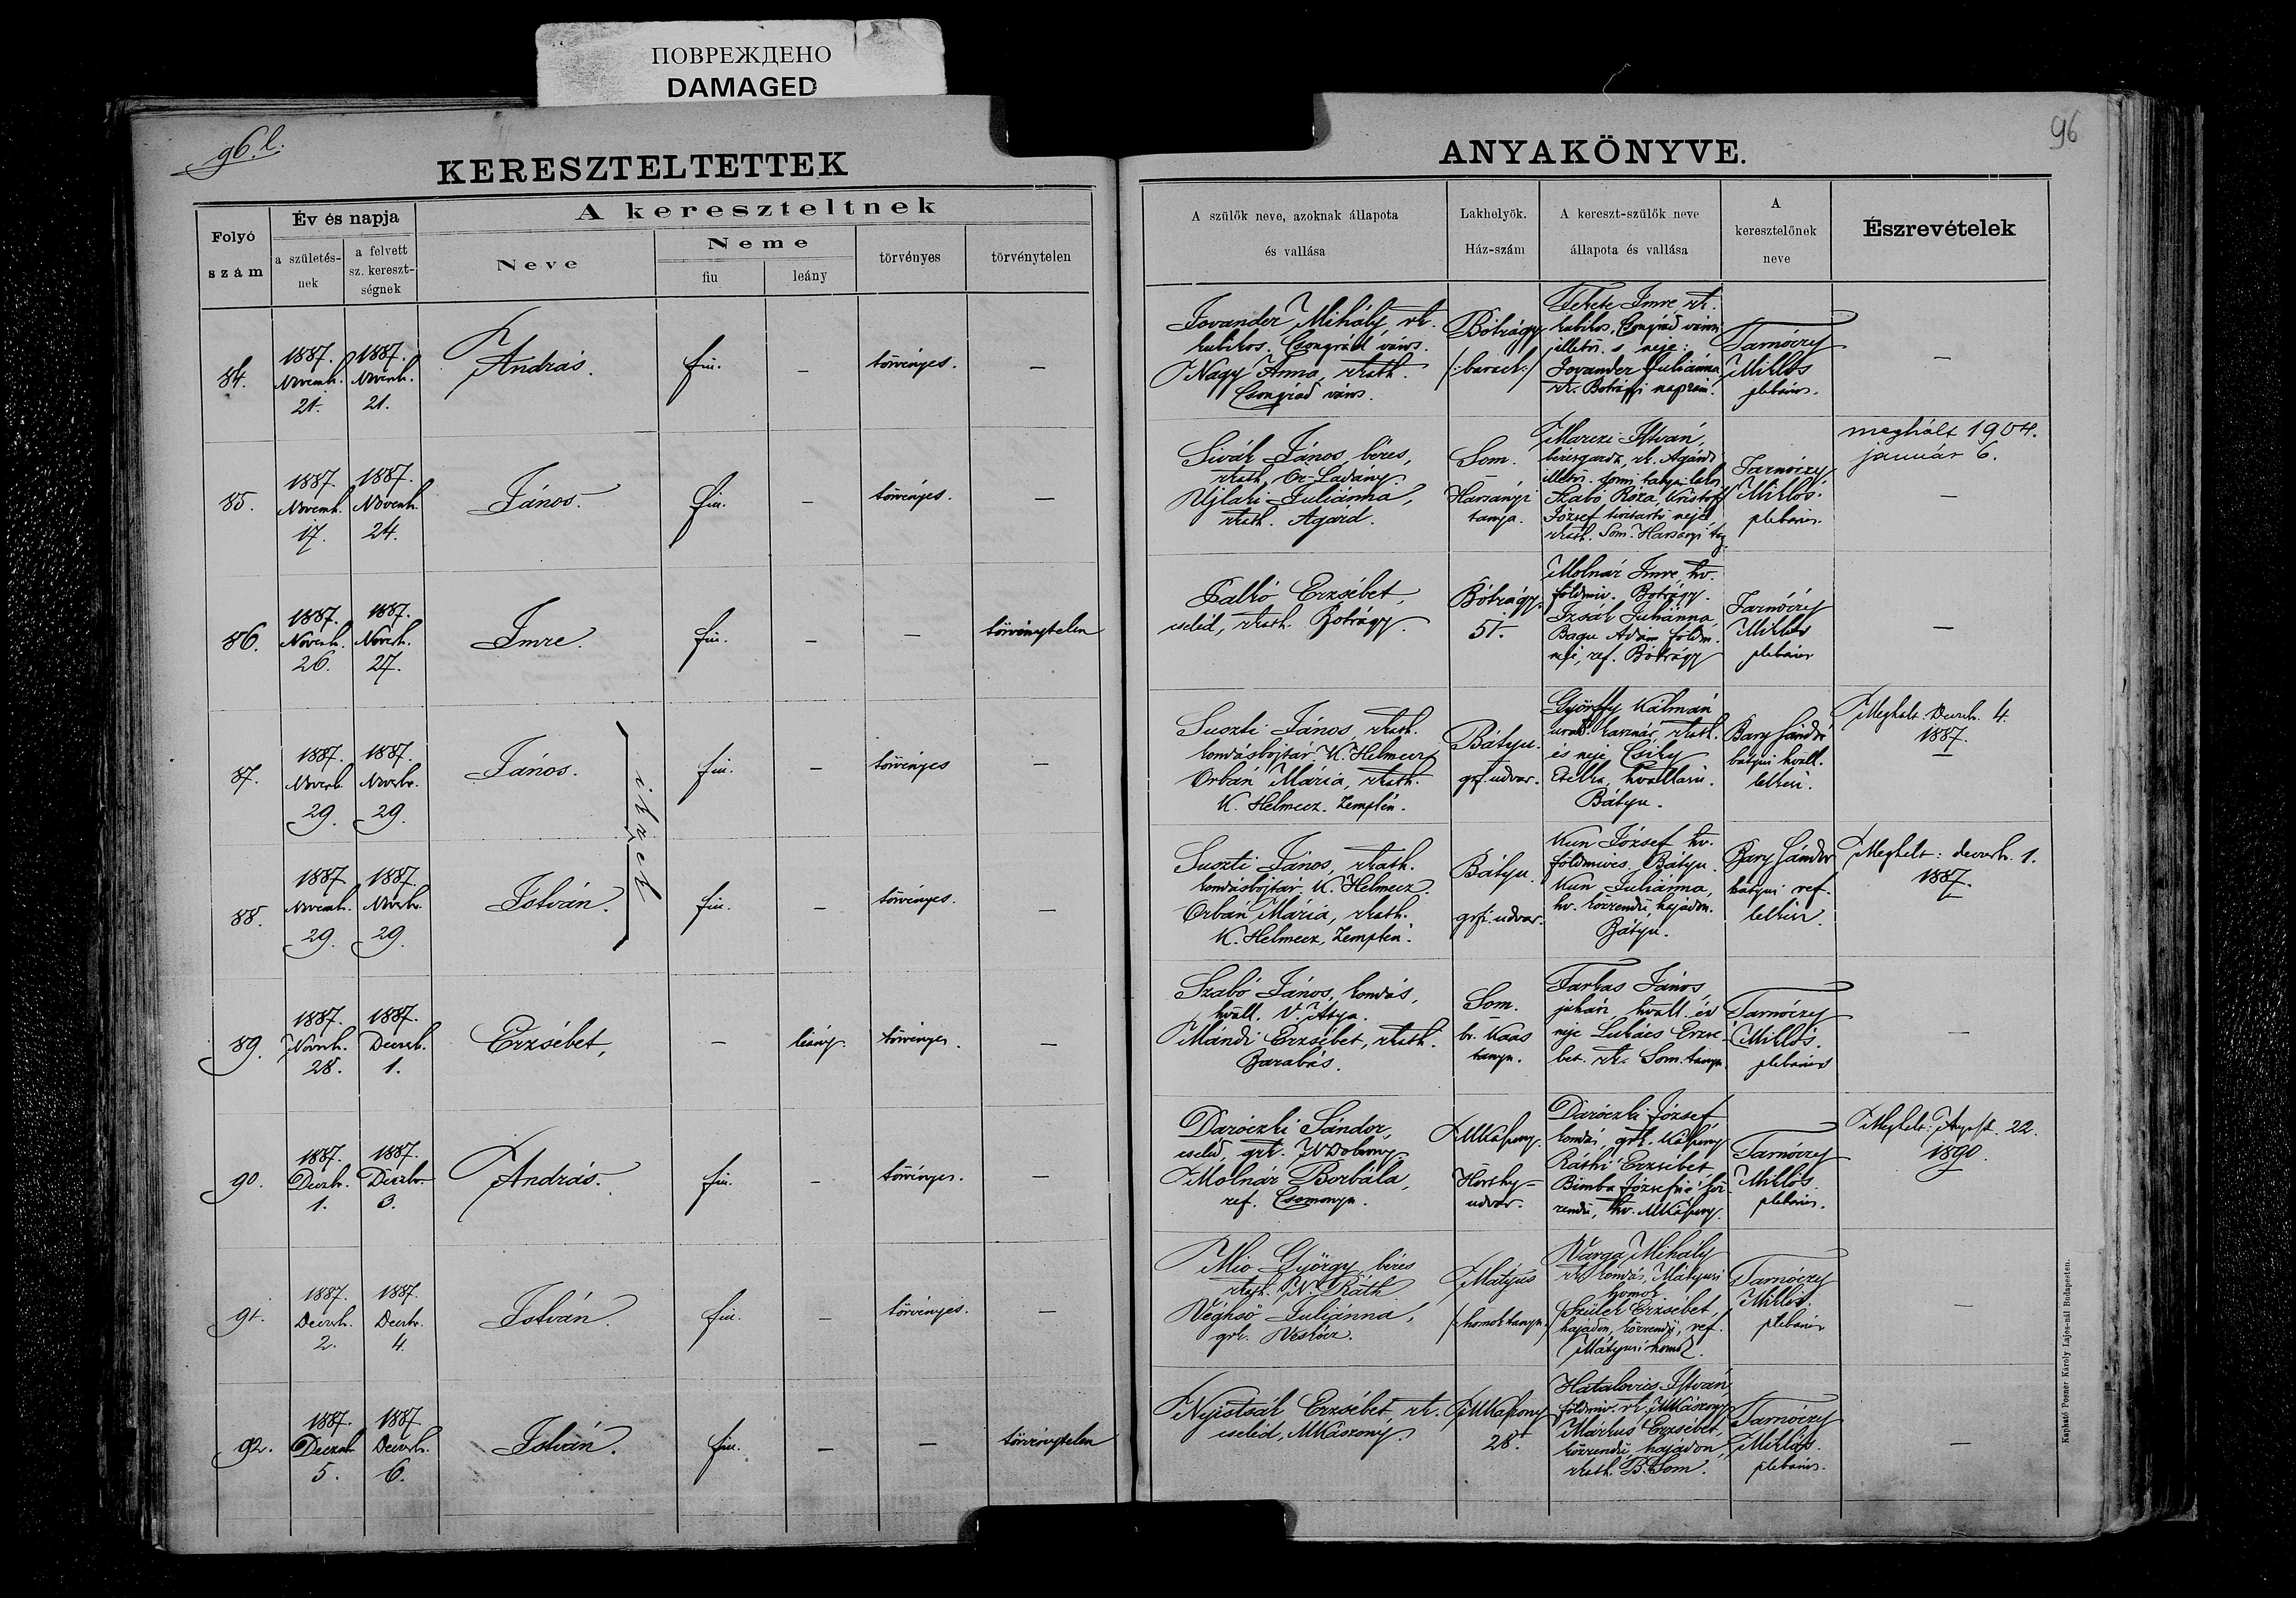 ПОВРЕЖДЕНО
DAMAGED
96. l.
96
KERESZTELTETTEK
ANYAKÖNYVE.
Folyó szám
Év és napja
a születés-nek
a felvett sz. kereszt-ségnek
A kereszteltnek
Neve
Neme
fiu
leány
törvényes
törvénytelen
A szülők neve, azoknak állapota
és vallása
Lakhelyök.
Ház-szám
A kereszt-szülők neve
állapota és vallása
A
keresztelőnek
neve
Észrevételek
84.
1887. Novemb. 21.
1887. Novemb. 21.
András.
fiu.
–
törvényes.
–
Jovander Mihály, rk.
kubikos. Csongrád város.
Nagy Anna, rkath.
Csongrád város.
Bótrágy
/:barack:/
Fekete Imre, rk.
kubikos, Csongrád városi
illetős. s neje:
Jovander Juliánna,
rk. Botrágyi
Tarnóczy
Miklós
plebános.
–
85.
1887. Novemb. 17.
1887. Novemb. 24.
János.
fiu.
–
törvényes.
–
Sivák János, béres,
rkath. Ör-Ladány.
Ujlaki Juliánna,
rkath. Agárd.
Som.
Harsányi
tanya.
Marczi István,
béresgazda, rk. Agárd
illetős. somi tanyai lakos
Szabó Róza, Kristóf
József neje
rkath. Som. Harsányi tag.
Tarnóczy
Miklós.
plebános.
meghált 1904.
január 6.
–
86.
1887. Novemb. 26.
1887. Novemb. 27.
Imre.
fiu.
–
–
törvénytelen
Balkó Erzsébet,
cseléd, rkath. Botrágy.
Bótrágy.
51.
Molnár Imre hv.
földmiv. Botrágy.
Izsák Juliánna,
Bagu Ádám földm.
neje, ref. Botrágy
Tarnóczy
Miklós
plebános
–
87.
1887. Novemb. 29.
1887. Novbr. 29.
János.
ikrek
fiu.
–
törvényes
–
Suszti János, rkath.
kondásbojtár K. Helmecz
Orbán Mária, rkath.
K. Helmecz. Zemplén.
Bátyu.
grf. udvar.
Györffy Kálmán
urad. kasznár, rkath.
és neje Csiky
Etelka, hvallásu.
Bátyu.
Bary Sándor
bátyui hvall.
lelkész.
Meghalt. Decemb. 4.
1887.
–
88.
1887 Novemb. 29.
1887. Novbr. 29.
István.
fiu.
–
törvényes.
–
Suszti János, rkath.
kondásbojtár. K. Helmecz.
Orbán Mária, rkath.
K. Helmecz, Zemplén.
Bátyu.
grfi. udvar.
Kun József hv.
földmives, Bátyu.
Kun Juliánna,
hv. közrendü, hajadon.
Bátyu.
Bary Sándor
batyui ref.
lelkész
Meghalt: decemb. 1.
1887.
89.
1887. Novemb. 28.
1887. Decemb. 1.
Erzsébet,
–
leány.
törvényes.
–
Szabó János, kondás,
hvall. V. Atya.
Mándi Erzsébet, rkath.
Barabás.
Som.
br. Kaas
tanya.
Farkas János,
juhász, hvall. és
neje Lukács Erzsé-
bet. rk. Som. tanya.
Tarnóczy
Miklós.
plebános
–
90.
1887. Deczb. 1.
1887. Deczbr. 3.
András.
fiu.
–
törvényes.
–
Daróczki Sándor,
cseléd, grk.
Molnár Borbála,
ref. Csomonya.
MKászony.
Horthy-
udvar.
Daróczki József
kondás, grk. Kászony
Ráthi Erzsébet
Bimba Józsefné köz-
rendü, hv. MKászony.
Tarnóczy
Miklós.
plebános.
Meghalt: August. 22.
1890.
91.
1887. Decemb. 2.
1887. Decembr. 4.
István.
fiu.
–
törvényes.
–
Mio György, béres
rkath. N. Ráth
Véghső Juliánna,
grk.
Mátyus
/:homok tanya:/
Varga Mihály
rk. kondás, Mátyusi
homok
Szülek Erzsébet,
hajadon, közrendü, ref.
Mátyusi homok.
Tarnóczy
Miklós.
plebános
–
92.
1887. Deczemb. 5.
1887. Decemb. 6.
István.
fiu.
–
–
törvénytelen
Nyistsák Erzsébet rk.
cseléd, MKászony.
MKászony
28.
Hatalovics István
földmiv. rk. MKászony
Márkus Erzsébet,
közrendü, hajadon,
rkath. B. Som.
Tarnóczy
Miklós.
plebános.
–
Kapható Posner Károly Lajos-nál Budapesten.